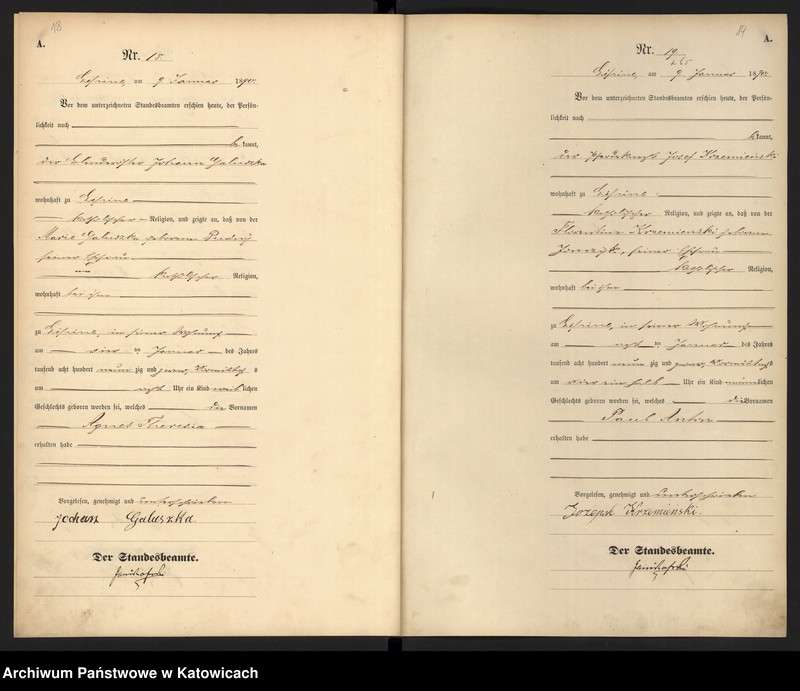 18
A.
Nr. 18
am 9 Januar 189
Vor dem unterzeichneten Standesbeamten erschien heute, der Persön-
lichkeit nach
kannt,
der Johann Galuszka
wohnhaft zu
katholischer Religion, und zeigte an, daß von der
Marie Galuszka geborene
seiner Ehefrau
katholischer Religion,
wohnhaft bei ihm
zu in seiner Wohnung
am vier ten Januar des Jahres
tausend acht hundert neun zig und zwei, Vormittags
um acht Uhr ein Kind weiblichen
Geschlechts geboren worden sei, welches die Vornamen
Agnes Theresia
erhalten habe
Vorgelesen, genehmigt und unterschrieben
Johann Galuszka
Der Standesbeamte.
19
A.
Nr. 19
am 9 Januar 189
Vor dem unterzeichneten Standesbeamten erschien heute, der Persön-
lichkeit nach
kannt,
der Pferdeknecht Josef Krzemienski
wohnhaft zu
katholischer Religion, und zeigte an, daß von der
Florentina Krzemienski geborene
seiner Ehefrau
katholischer Religion,
wohnhaft bei ihm
zu in seiner Wohnung
am acht ten Januar des Jahres
tausend acht hundert neun zig und zwei, Vormittags
um vier ein halb Uhr ein Kind männlichen
Geschlechts geboren worden sei, welches die Vornamen
Paul Anton
erhalten habe
Vorgelesen, genehmigt und unterschrieben
Jozeph Krzemienski.
Der Standesbeamte.
Archiwum Państwowe w Katowicach